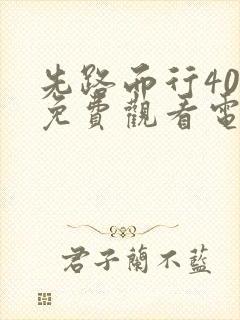 先路而行40
免費觀看電
君子蘭不藍